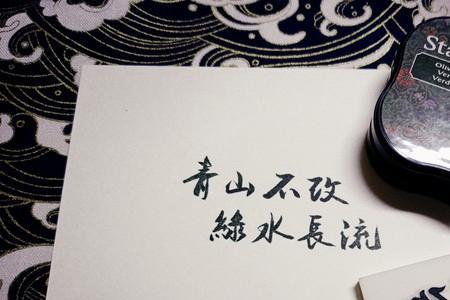 青山不改
綠水長流
Sta
Oli
Ver
Verd